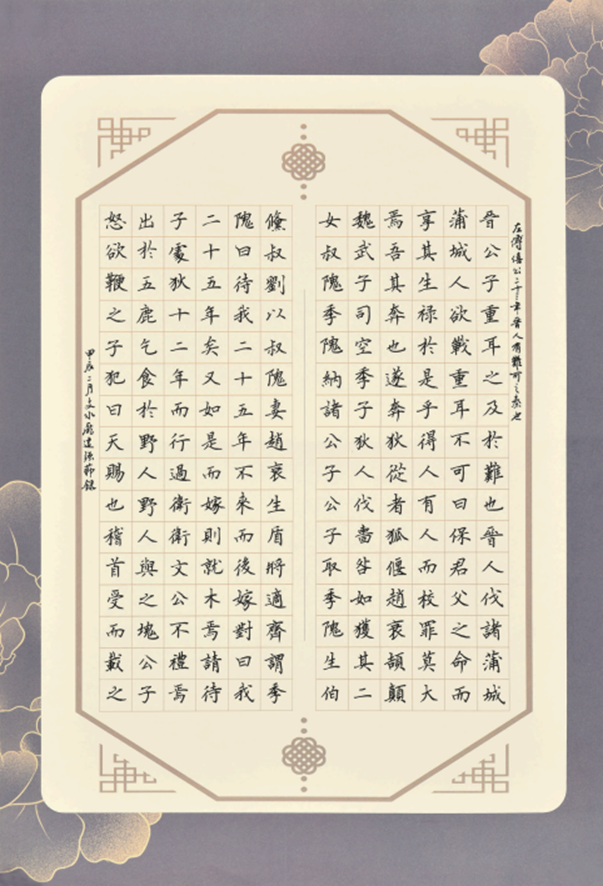 左傳僖公二十三年晉人有難
晉公子重耳之及於難也晉人伐諸蒲城
蒲城人欲戰重耳不可曰保君父之命而
享其生祿於是乎得人有人而校罪莫大
焉吾其奔也遂奔狄從者狐偃趙衰頡顛
魏武子司空季子狄人伐嗇咎如獲其二
女叔隗季隗納諸公子公子取季隗生伯
鯈叔劉以叔隗妻趙衰生盾將適齊謂季
隗曰待我二十五年不來而後嫁對曰我
二十五年矣又如是而嫁則就木焉請待
子處狄十二年而行過衛衛文公不禮焉
出於五鹿乞食於野人野人與之塊公子
怒欲鞭之子犯曰天賜也稽首受而載之
甲辰二月節錄